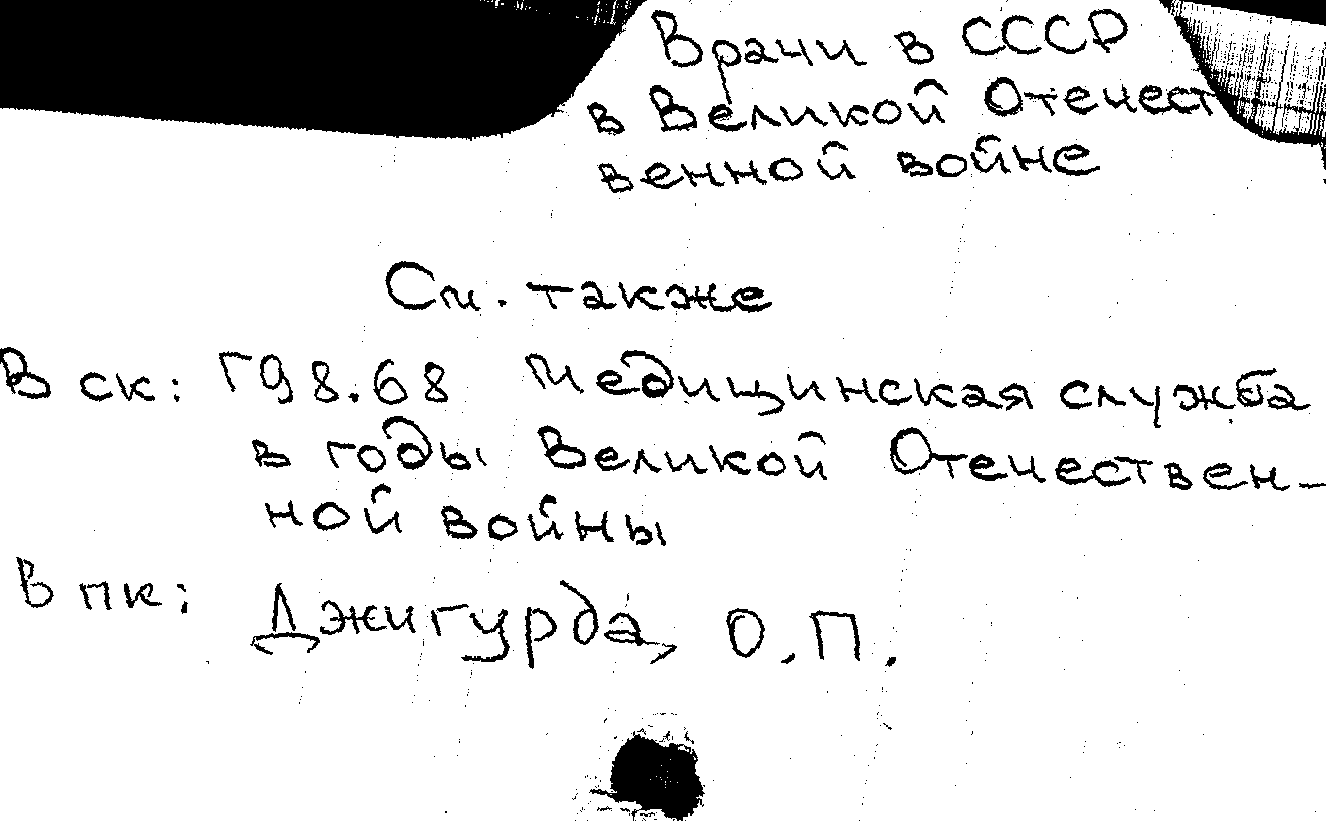 Врачи в СССР
в Великой Отечест
венной войне
См. также
В ск: Г98.68 Медицинская служба
в годы Великой Отечествен-
ной войны
В пк: Джигурда, О.П.